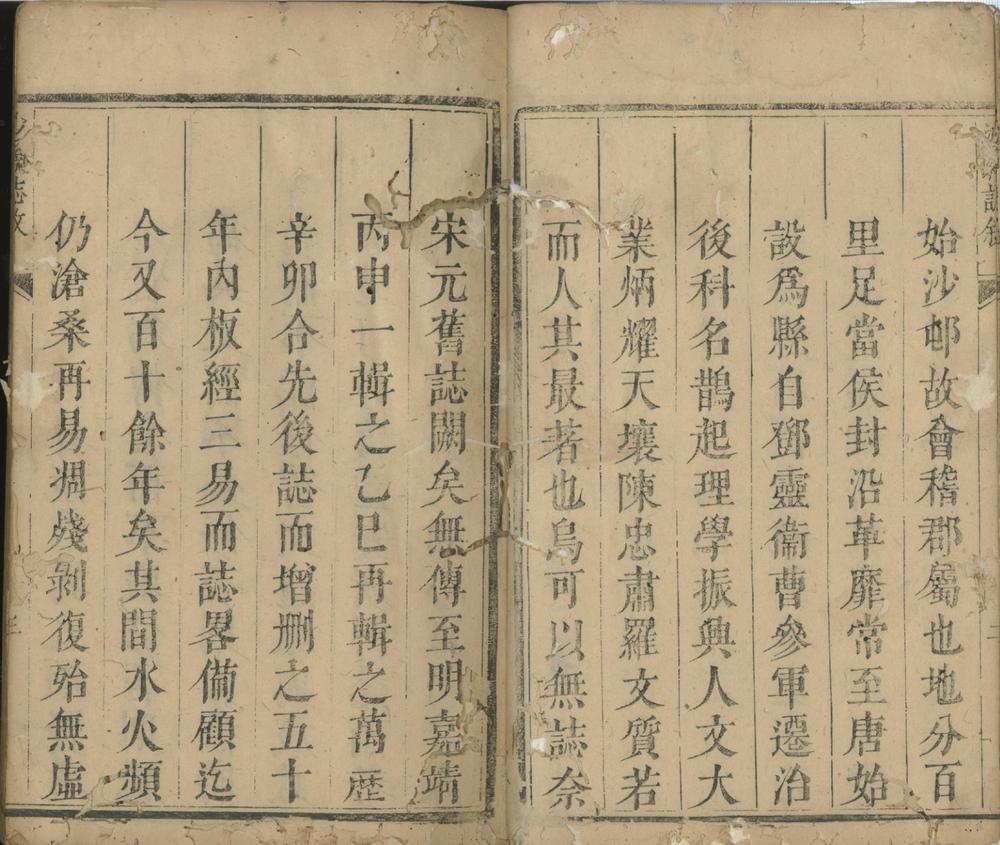 始沙邨故會稽郡屬也地分百
里足當侯封沿革靡常至唐始
設爲縣自鄧靈衞曹參軍遷治
後科名鵲起理學振興人文大
業炳耀天壤陳忠肅羅文質若
而人其最著也烏可以無誌奈
宋元舊誌闕矣無傳至明嘉靖
丙申一輯之乙巳再輯之萬歷
辛卯合先後誌而增刪之五十
年內板經三易而誌畧備顧迄
今又百十餘年矣其間水火頻
仍滄桑再易凋殘剝復殆無虛